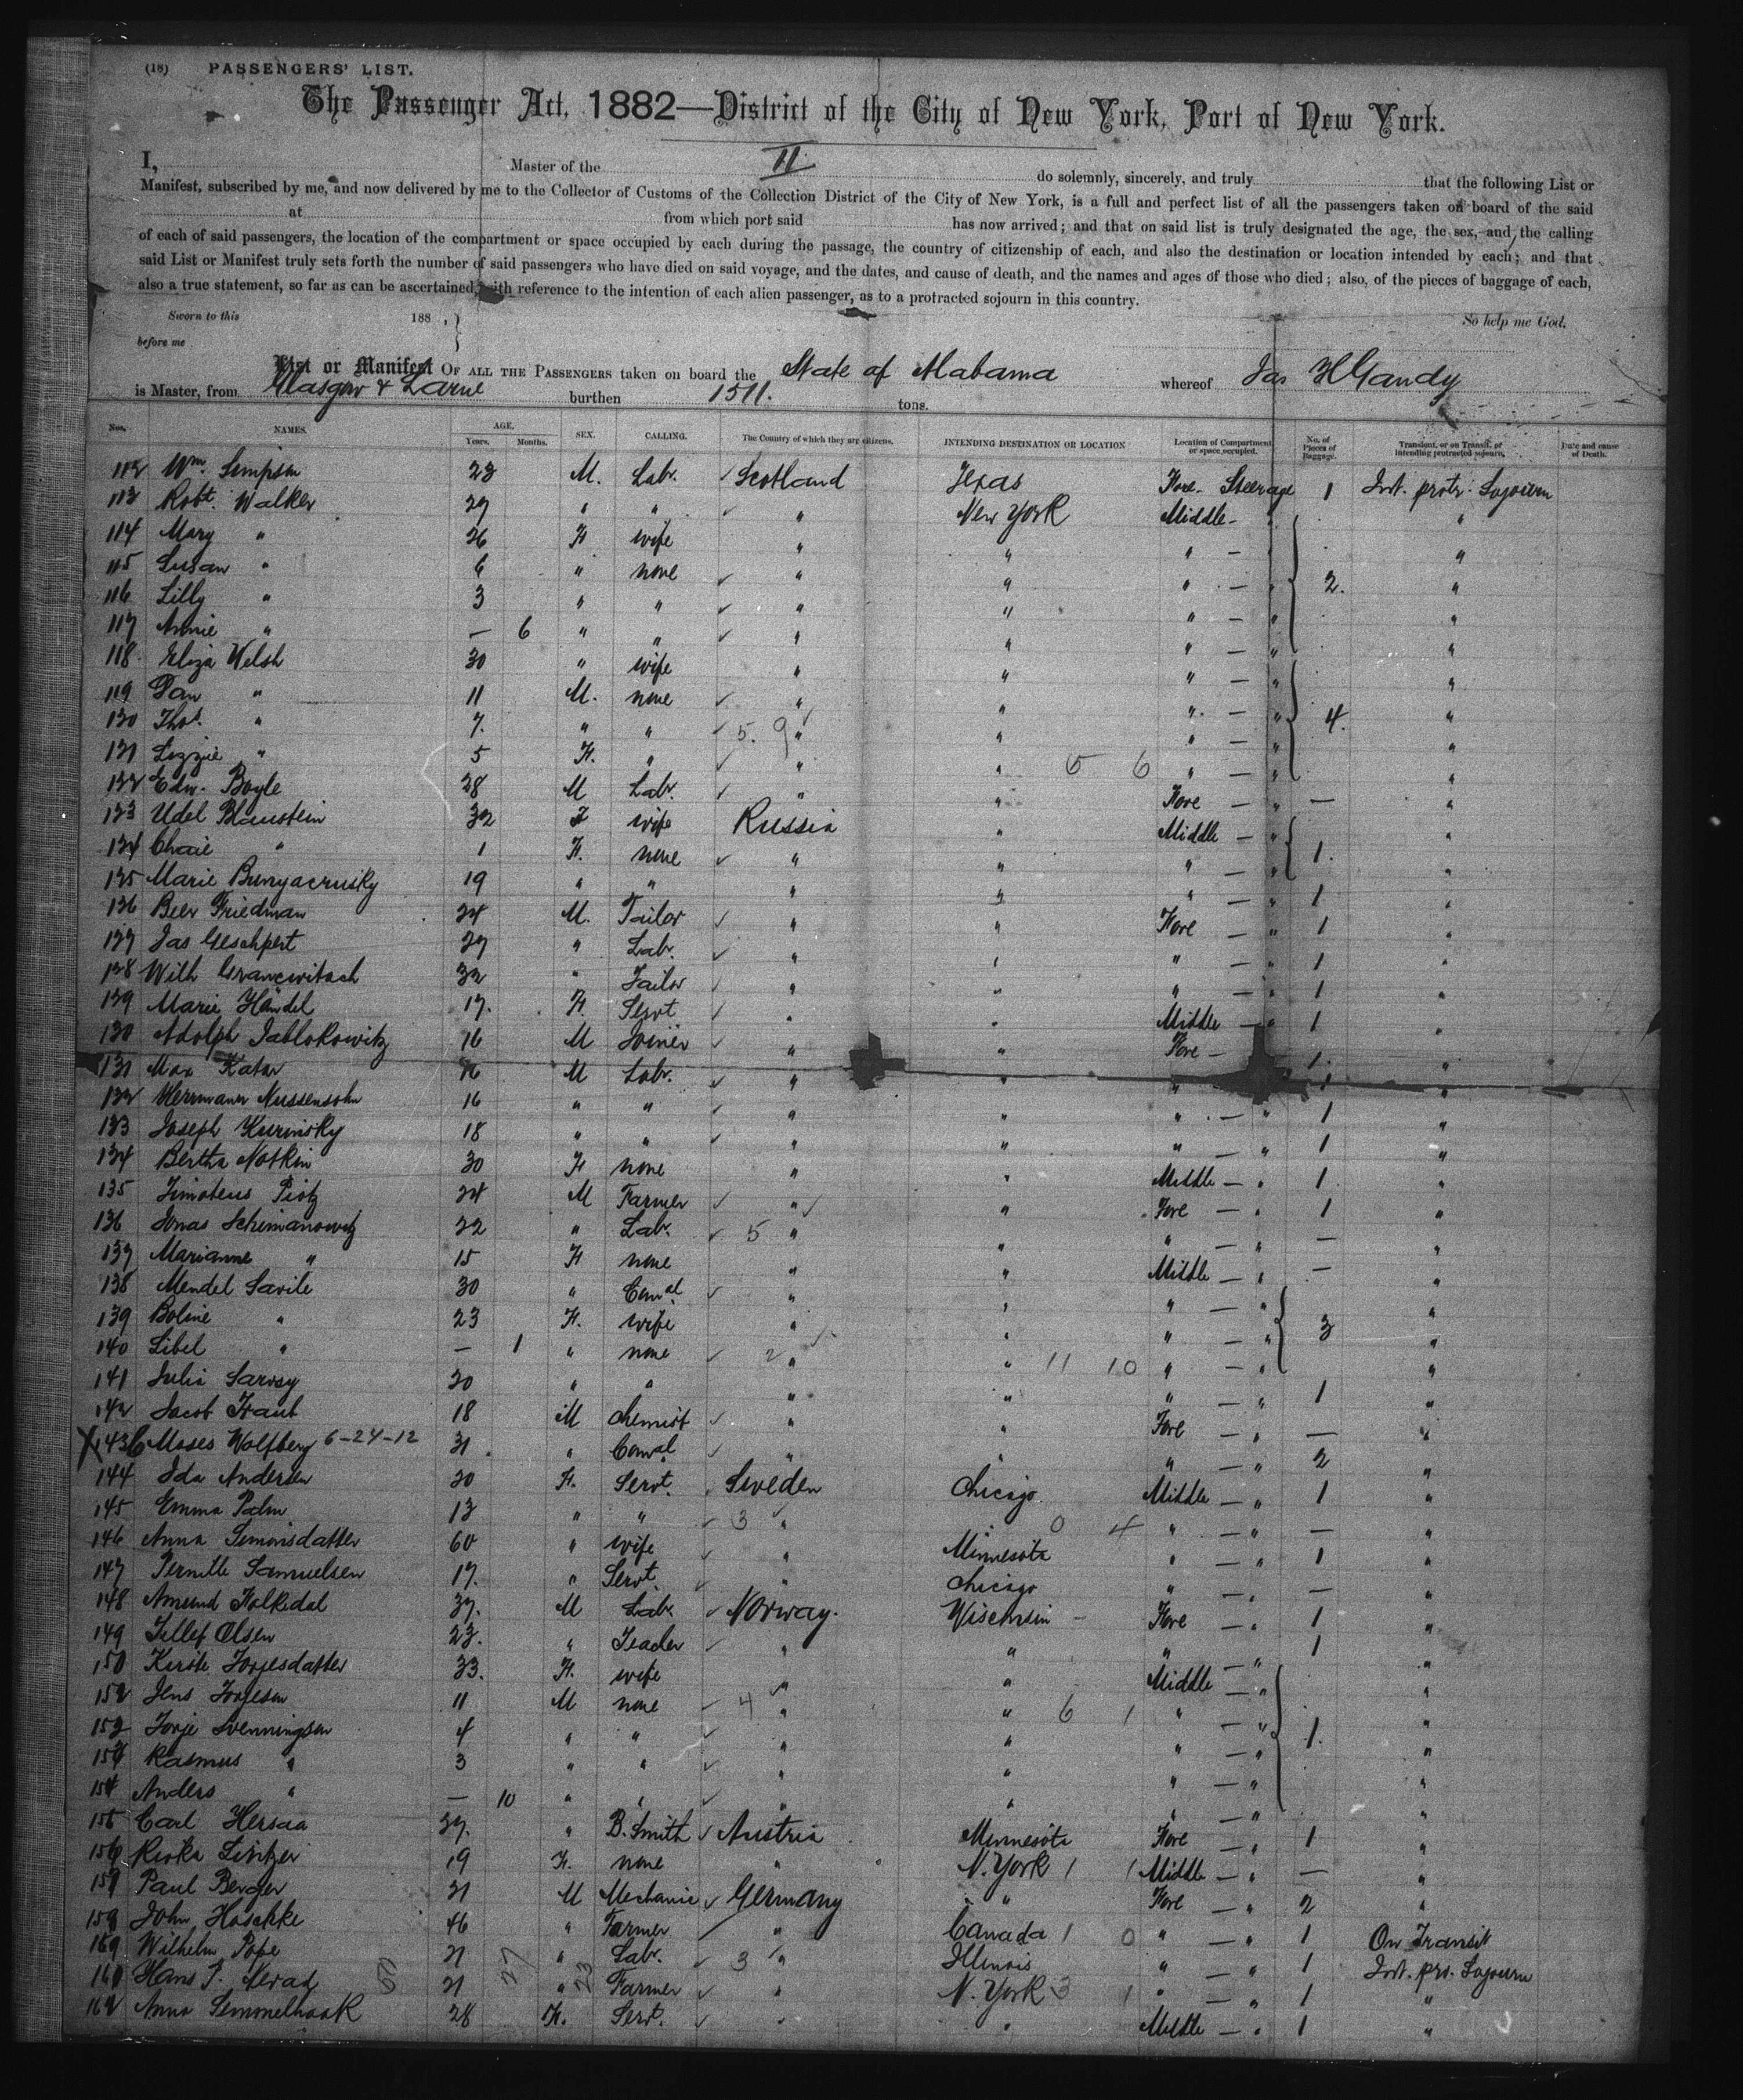 (18) PASSENGERS' LIST.
The Passenger Act, 1882—District of the City of New York, Port of New York.
II
I, Master of the do solemnly, sincerely, and truly that the following List or
Manifest, subscribed by me, and now delivered by me to the Collector of Customs of the Collection District of the City of New York, is a full and perfect list of all the passengers taken on board of the said
at from which port said has now arrived; and that on said list is truly designated the age, the sex, and the calling
of each of said passengers, the location of the compartment or space occupied by each during the passage, the country of citizenship of each, and also the destination or location intended by each; and that
said List or Manifest truly sets forth the number of said passengers who have died on said voyage, and the dates, and cause of death, and the names and ages of those who died; also, of the pieces of baggage of each,
also a true statement, so far as can be ascertained, with reference to the intention of each alien passenger, as to a protracted sojourn in this country.
Sworn to this 188 , } So help me God.
before me
List or Manifest OF ALL THE PASSENGERS taken on board the State of Alabama whereof Jas H Gandy
is Master, from Glasgow & Larne burthen 1511. tons.
Nos. NAMES. AGE. Years. Months. SEX. CALLING. The Country of which they are citizens. INTENDING DESTINATION OR LOCATION Location of Compartment or space occupied. No. of Pieces of Baggage. Transient, or on Transit, or intending protracted sojourn. Date and cause of Death.
112 Wm. Simpson 23 M. Labr. Scotland Texas Fore - Steerage 1 Int. protr. Sojourn
113 Robt. Walker 27 " " " New York Middle - " "
114 Mary " 26 F wife " " " — " "
115 Susan " 6 " none " " " — " 2. "
116 Lilly " 3 " " " " " — " "
117 Annie " — 6 " " " " " — " "
118 Eliza Welsh 30 " wife " " " — " "
119 Dan " 11 M. none " " " — " 4. "
120 Thos. " 7. " " 5. 9 " " " — " "
121 Lizzie " 5 F. " " " 5 6 " — " "
122 Edw. Boyle 28 M Labr. " " Fore — " — "
123 Udel Blaustein 32 F wife Russia " Middle — " "
124 Chaie " 1 F. none " " " — " 1. "
125 Marie 19 " " " " " — " 1 "
126 Beer Friedman 24 M. Tailor " " Fore — " 1 "
127 Jas Geschpert 27 " Labr. " " " — " 1 "
128 With 32 " Tailor " " " — " 1 "
129 Marie Händel 17. F. Servt " " Middle — " 1 "
130 Adolph Jablokowitz 16 M Joiner " " Fore — 1. "
131 Max Katar 16 M Labr. " " " 1 "
132 Herrmann Nussensohn 16 " " " " " — " 1 "
133 Joseph Kurinsky 18 " " " " " — " 1 "
134 Bertha Notkin 30 F none " " Middle — " 1 "
135 Timoteus Piotz 24 M Farmer " " Fore — " 1 "
136 Jonas Schimanowitz 22 " Labr. 5 " " " — " — "
137 Marianne " 15 F none " " Middle — " — "
138 Mendel Savile 30 " Comal " " " — " "
139 Boline " 23 F. wife " " " — " 3 "
140 Libel " — 1 " none 2 " " 11 10 " — " "
141 Julia Sarosy 20 " " " " " — " 1 "
142 Jacob Traub 18 M Chemist " " Fore — " — "
X 143 Moses Wolfberg 6-24-12 31 " Comal " " " — " 2 "
144 Ida Andersen 20 F. Servt. Sweden Chicago Middle — " 1 "
145 Emma Palm 13 " " 3 " 0 4 " — " — "
146 Anna Simonsdatter 60 " wife " Minnesota " — " 1 "
147 Pernille Samuelsen 17. " Servt. " Chicago " — " — "
148 Amund Folkedal 37. M Labr. Norway. Wisconsin - Fore — " 1 "
149 Tellef Olsen 23. " Teacher " " " — " 1 "
150 Kirste Torjesdatter 33. F. wife " " Middle — " "
152 Jens Torjesen 11 M none 4 " " 6 1 " — " "
152 Torje Svenningsen 4 " " " " " — " 1. "
154 Rasmus " 3 " " " " " — " "
154 Anders " — 10 " " " " " — " "
155 Carl Hersaa 37. " B. Smith Austria Minnesota Fore — " 1 "
156 19 F. none " N. York 1 1 Middle — " — "
157 Paul Berger 31 M Mechanic Germany " Fore — " 2 "
159 John Hoschke 46 " Farmer " Canada 1 0 " — " 1 On Transit
159 Wilhelm Pope 21 " Labr. 3 " Illinois " — " 1 Int. pro. Sojourn
160 Hans P. 50 21 27 " 23 Farmer " N. York 3 1 " — " 1 "
162 Anna Semmelhaak 28 F. Servt. " " Middle — " 1 "